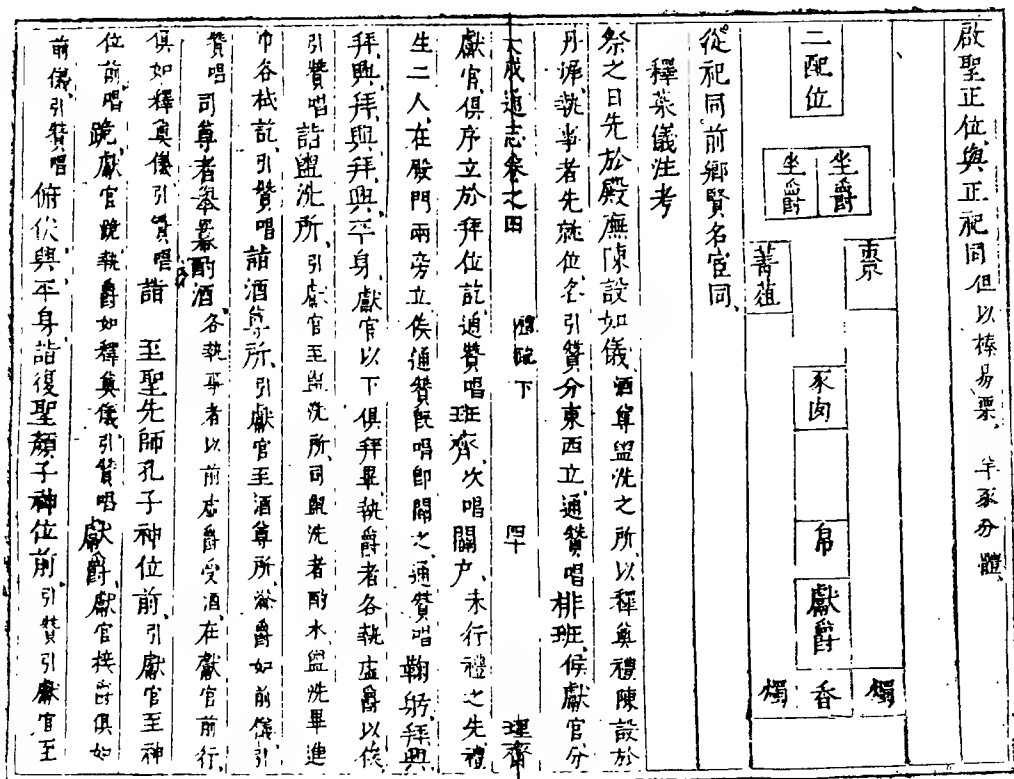 啟聖正位與正祀同但以榛易栗 羊豕分體
二配位
坐爵 坐爵
栗
菁菹
豕肉
帛
獻爵
燭 香 燭
從祀同前鄉賢名宦同
釋菜儀注考
祭之日先於殿廡陳設如儀酒尊盥洗之所以釋奠禮陳設於
丹墀執事者先就位各引贊分東西立通贊唱排班候獻官分
大成通志卷之四 下 四十 理齋
獻官俱序立於拜位訖通贊唱班齊次唱闢户未行禮之先禮
生二人在殿門兩旁立俟通贊既唱即闢之通贊唱鞠躬拜興
拜興拜興拜興平身獻官以下俱拜畢執爵者各執虛爵以俟
引贊唱詣盥洗所引獻官至盥洗所司盥洗者酌水盥洗畢進
巾各拭訖引贊唱詣酒尊所引獻官至酒尊所滌爵如前儀引
贊唱司尊者舉羃酌酒各執事者以前虛爵受酒在獻官前行
俱如釋奠儀引贊唱詣 至聖先師孔子神位前引獻官至神
位前唱跪獻官跪執爵如釋奠儀引贊唱獻爵獻官接爵俱如
前儀引贊唱俯伏興平身詣復聖顏子神位前引贊引獻官至